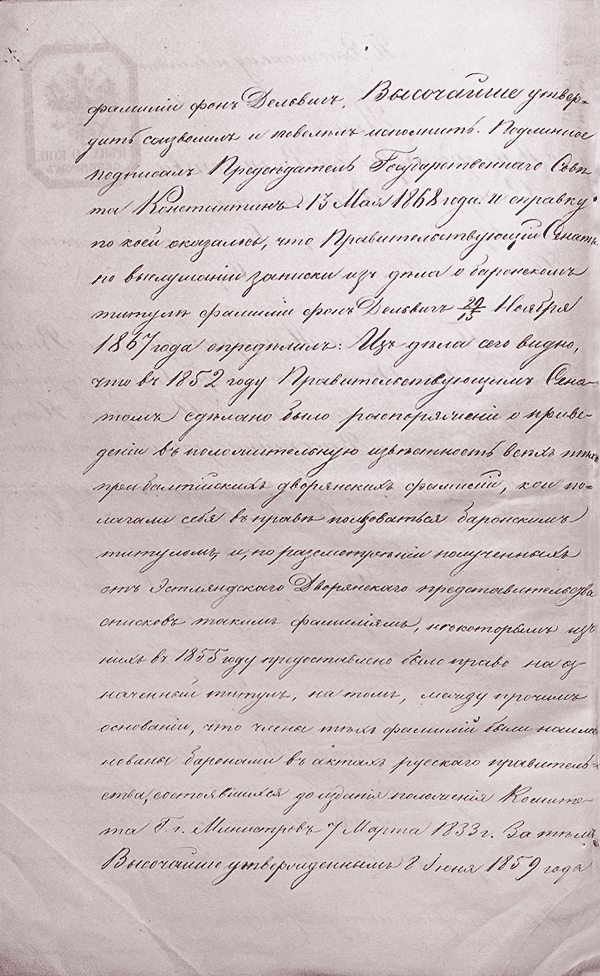 фамиліи фонъ Дельвигъ, Высочайше утвер-
дить соизволилъ и повелѣлъ исполнить. Подлинное
подписалъ Предсѣдатель Государственнаго Совѣ-
та Константинъ. 13 Мая 1868 года. и справку
по коей оказалось, что Правительствующій Сенатъ
по выслушаніи записки изъ дѣла о баронскомъ
титулѣ фамиліи фонъ Дельвигъ 29/15 Ноября
1867 года опредѣлилъ: Изъ дѣла сего видно,
что въ 1852 году Правительствующимъ Сена-
томъ сдѣлано было распоряженіе о приве-
деніи въ положительную извѣстность всѣхъ тѣхъ
прибалтійскихъ дворянскихъ фамилій, кои по-
лагали себя въ правѣ пользоваться баронскимъ
титуломъ, и, по разсмотрѣніи полученныхъ
отъ Эстляндскаго Дворянскаго представительства
списковъ такимъ фамиліямъ, нѣкоторымъ изъ
нихъ въ 1855 году предоставлено было право на оз-
наченный титулъ, на томъ, между прочимъ
основаніи, что члены тѣхъ фамилій были наиме-
нованы баронами въ актахъ русскаго правитель-
ства, состоявшихся до изданія положенія Комите-
та Г. г. Министровъ 7 Марта 1833 г. За тѣмъ
Высочайше утвержденнымъ 8 Іюня 1859 года